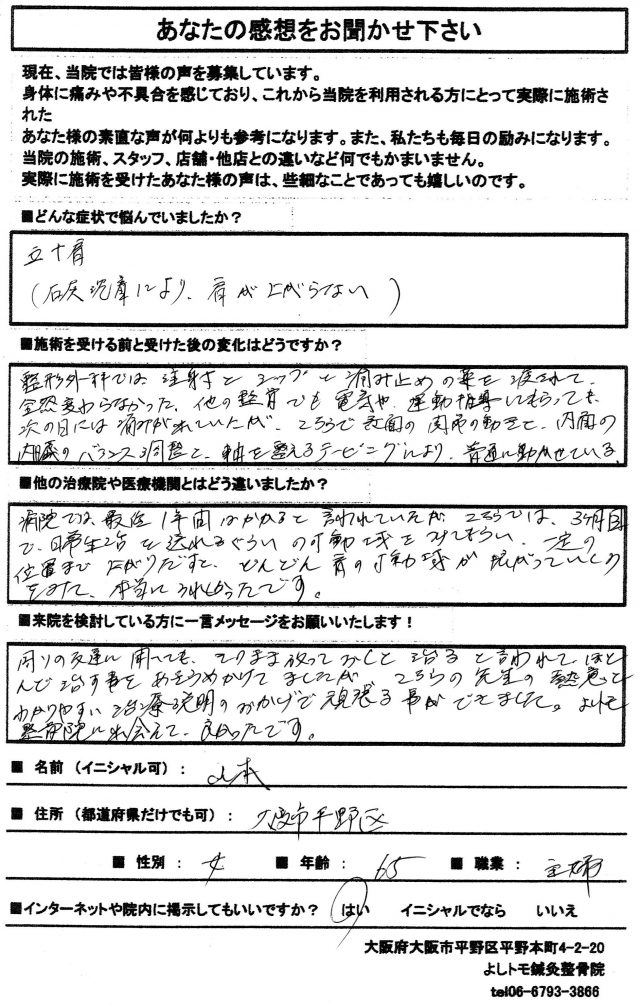 あなたの感想をお聞かせ下さい
現在、当院では皆様の声を募集しています。
身体に痛みや不具合を感じており、これから当院を利用される方にとって実際に施術さ
れた
あなた様の素直な声が何よりも参考になります。また、私たちも毎日の励みになります。
当院の施術、スタッフ、店舗・他店との違いなど何でもかまいません。
実際に施術を受けたあなた様の声は、些細なことであっても嬉しいのです。
■どんな症状で悩んでいましたか?
五十肩
(石灰沈着により、肩が上がらない)
■施術を受ける前と受けた後の変化はどうですか?
整形外科では注射とシップと痛み止めの薬を渡されて、
全然変わらなかった。他の整骨でも電気や、運動指導してもらっても、
次の日には痛みがれていたが、こちらで表面の関節の動きと、内面の
内臓のバランス調整と、軸を整えるテーピングにより、普通に動かせている。
■他の治療院や医療機関とはどう違いましたか?
病院では、最低1年間はかかると言われていたが、こちらでは、3ヶ月目
で、日常生活を送れるぐらいの可動域をみてもらい、一定の
位置まで上がりだすと、どんどん肩の可動域が拡がっていくの
をみて、本当にうれしかったです。
■来院を検討している方に一言メッセージをお願いいたします!
周りの友達に聞いても、そのまま放っておくと治ると言われて、ほと
んど治す事をあきらめかけてましたが、こちらの先生の熱意と
わかりやすい治療説明のおかげで頑張る事ができました。よしトモ
整骨院に出会えて、良かったです。
■ 名前(イニシャル可): 山本
■ 住所(都道府県だけでも可): 大阪市平野区
■ 性別: 女 ■ 年齢: 65 ■ 職業: 主婦
■インターネットや院内に掲示してもいいですか? はい イニシャルでなら いいえ
大阪府大阪市平野区平野本町4-2-20
よしトモ鍼灸整骨院
tel06-6793-3866